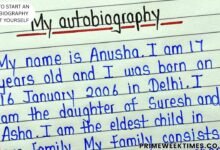 TO START AN
BIOGRAPHY
T YOURSELF
My autobiography
My name is Anusha. I am 17
years old and I was born on
16 January 2006 in Delhi. I
am the daughter of Suresh and
Asha. I am the eldest child in
family. My family consists
PRIMEWEEKTIMES.CO